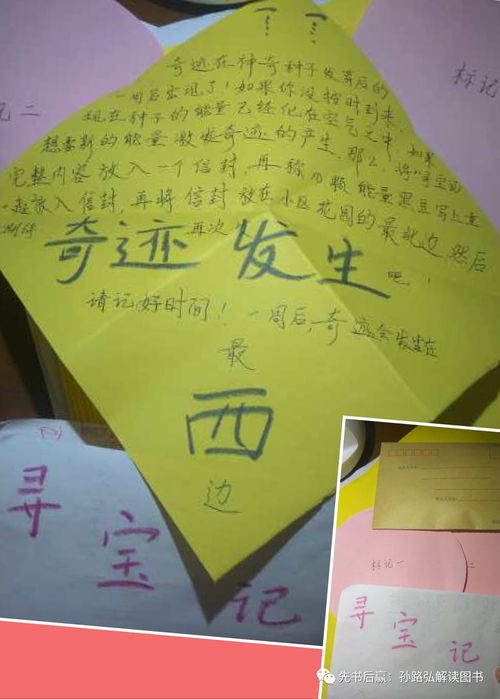 奇迹在神奇种子发芽后的
一周后出现了!如果你没按时到来,
现在种子的能量已经化在空气之中,如果
想要新的能量激发奇迹的产生,那么,将"寻宝记"
完整内容放入一个信封,再称10颗能量黑豆写上重
一起放入信封,再将信封放在小区花园的最北边,然后
再次
奇迹发生
吧!
请记好时间!一周后,奇迹会发生在
最
西
边
标记
记二
寻
宝
记
标记一
二
寻
宝
记
先书后赢:孙路弘解读图书